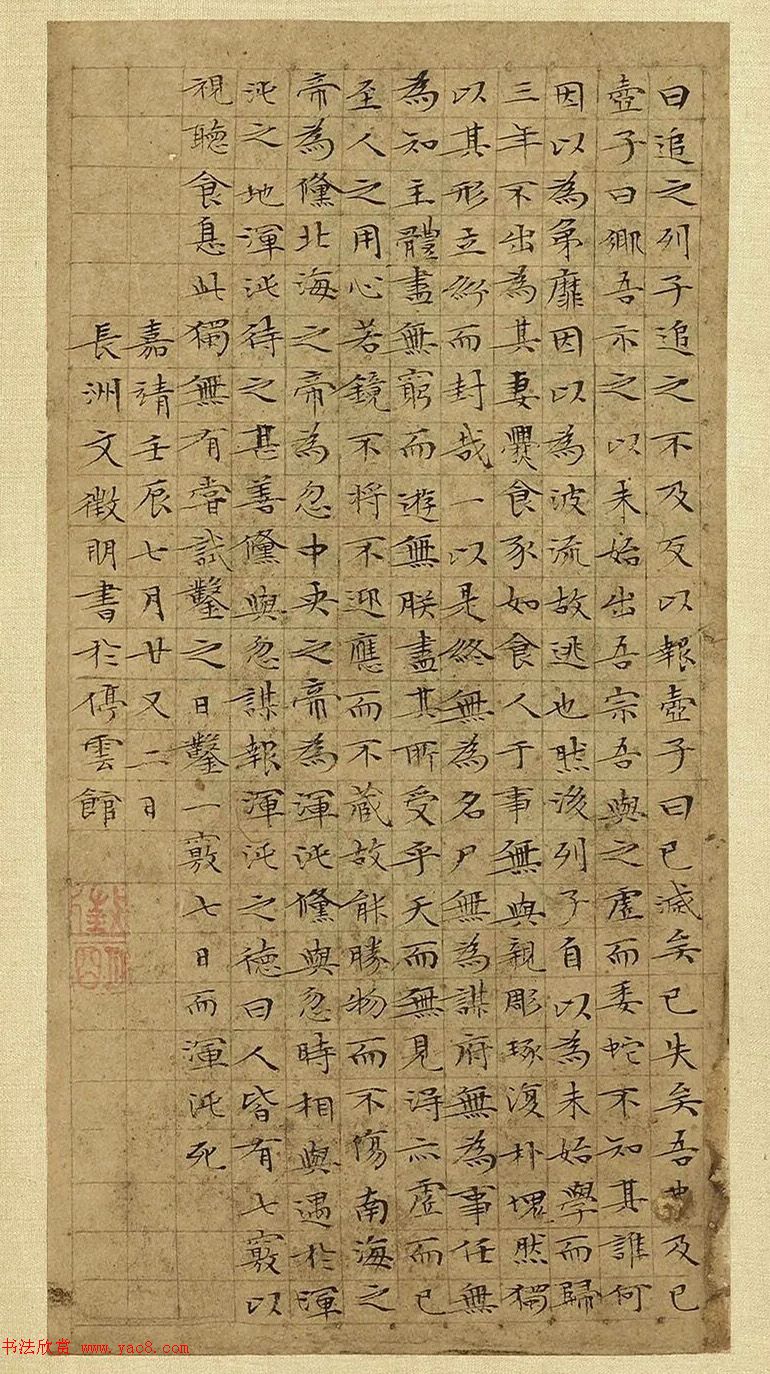 曰追之列子追之不及反以報壺子曰已滅矣已失矣吾及已
壺子曰鄉吾示之以未始出吾宗吾與之虛而委蛇不知其誰何
因以為弟靡因以為波流故逃也然後列子自以為未始學而歸
三年不出為其妻爨食豕如食人于事無與親彫琢復朴塊然獨
以其形立紛而封哉一以是終無為名尸無為謀府無為事任無
為知主體盡無窮而遊無朕盡其所受乎天而無見得亦虛而已
至人之用心若鏡不將不迎應而不藏故能勝物而不傷南海之
帝為儵北海之帝為忽中央之帝為渾沌儵與忽時相與遇於渾
沌之地渾沌待之甚善儵與忽謀報渾沌之德曰人皆有七竅以
視聽食息此獨無有嘗試鑿之日鑿一竅七日而渾沌死
嘉靖壬辰七月廿又二日
長洲文徵明書於停雲館
书法欣赏 www.yac8.com